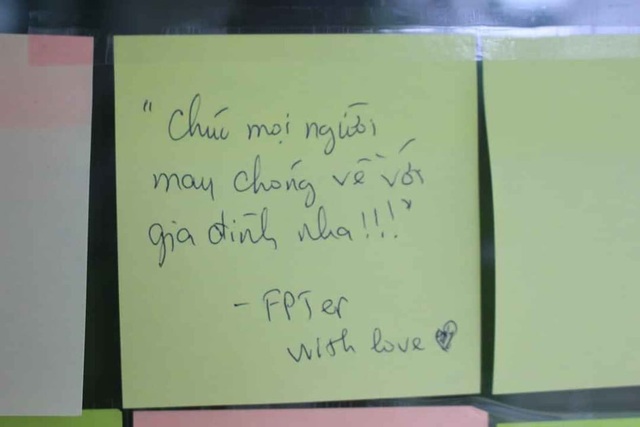 "Chúc mọi người
may chóng về với
gia đình nha!!!"
- FPTer
with love